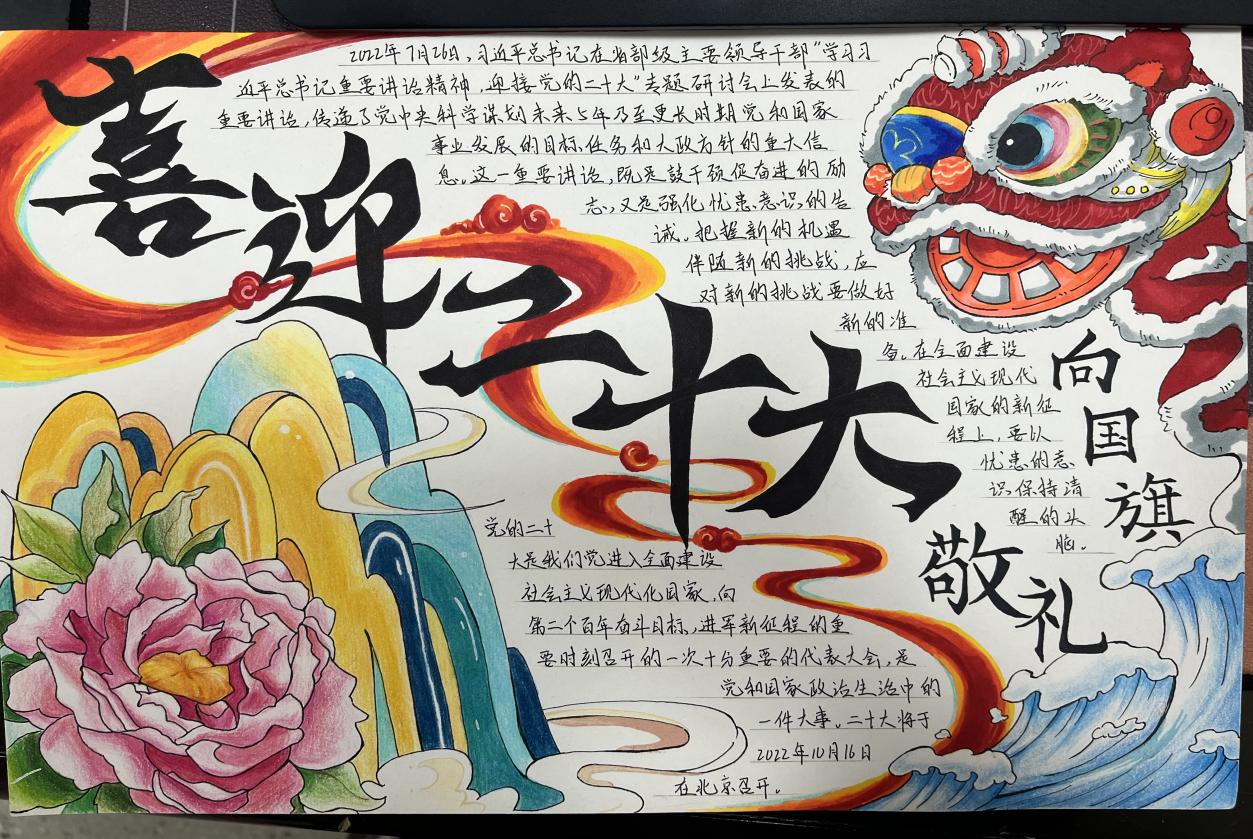 喜迎二十大
2022年7月26日，习近平总书记在省部级主要领导干部“学习习
近平总书记重要讲话精神，迎接党的二十大”专题研讨会上发表的
重要讲话，传递了党中央科学谋划未来5年乃至更长时期党和国家
事业发展的目标任务和大政方针的重大信
息，这一重要讲话，既是鼓干颈促奋进的励
志，又是强化忧患意识的告
诫。把握新的机遇
伴随新的挑战，应
对新的挑战要做好
新的准
备。在全面建设
社会主义现代
国家的新征
程上，要以
忧患的意
识保持清
醒的头
脑。
向国旗
敬礼
党的二十
大是我们党进入全面建设
社会主义现代化国家，向
第二个百年奋斗目标，进军新征程的重
要时刻召开的一次十分重要的代表大会，是
党和国家政治生活中的
一件大事。二十大将于
2022年10月16日
在北京召开。